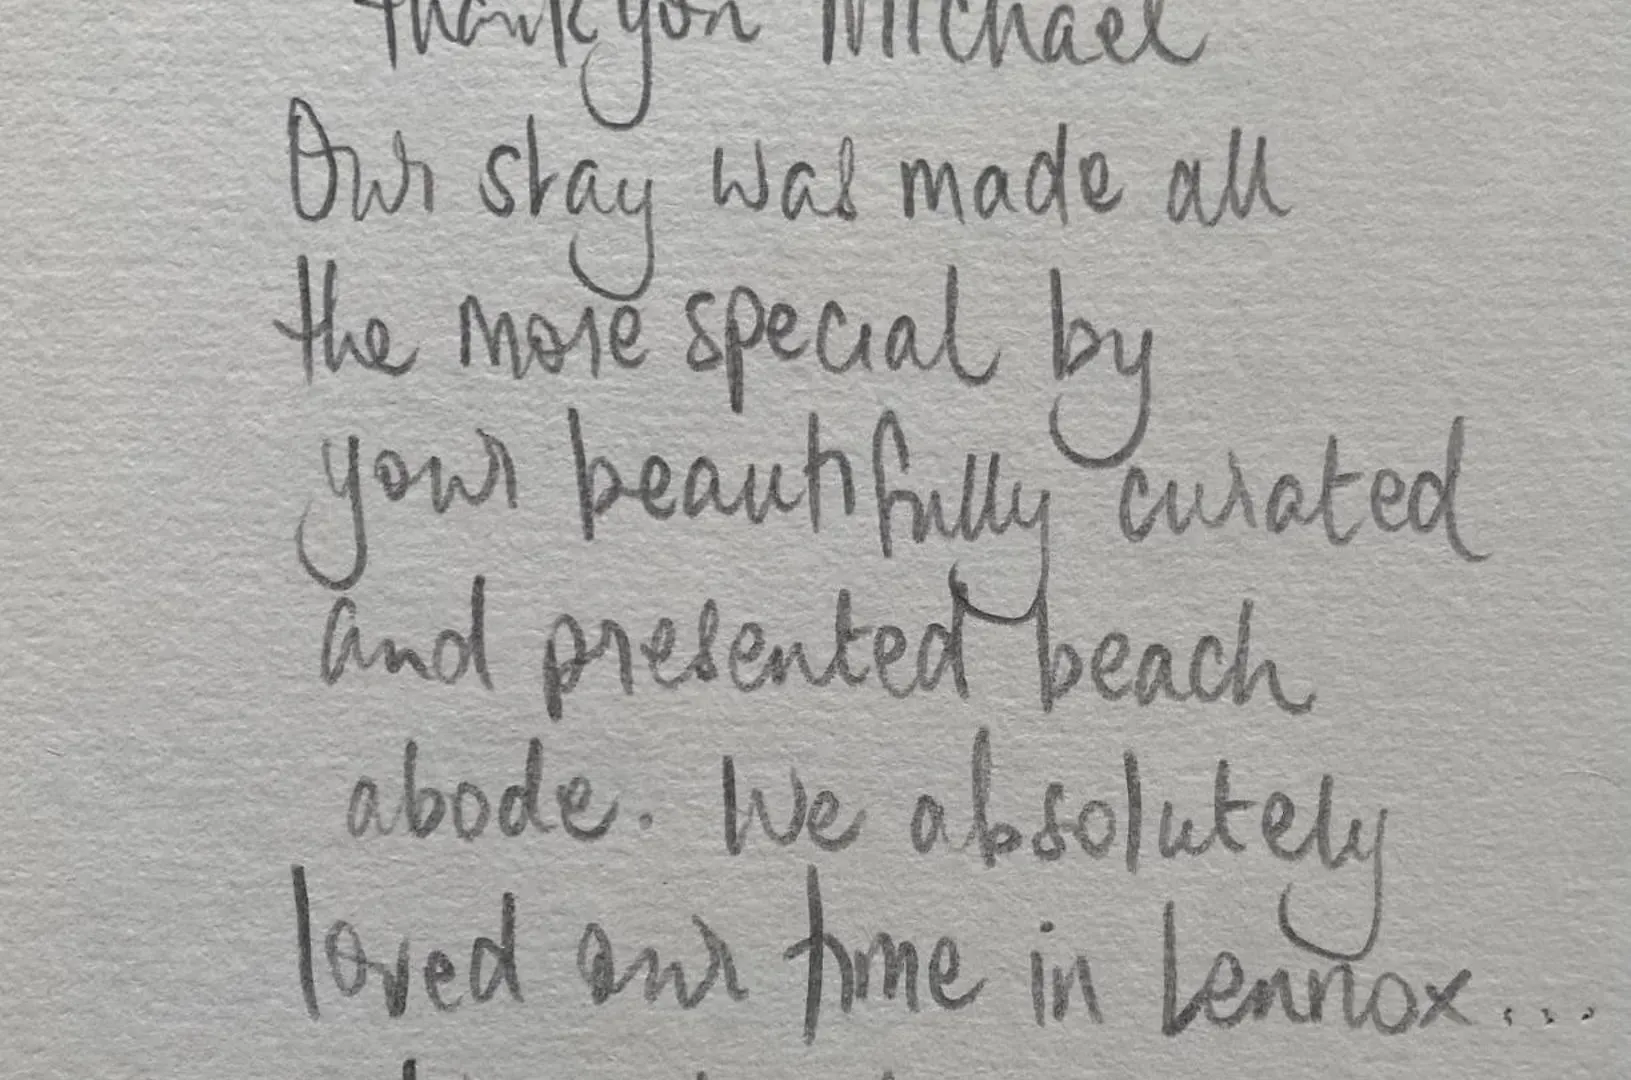 Thank you Michael
Our stay was made all
the more special by
your beautifully curated
and presented beach
abode. We absolutely
loved our time in Lennox...